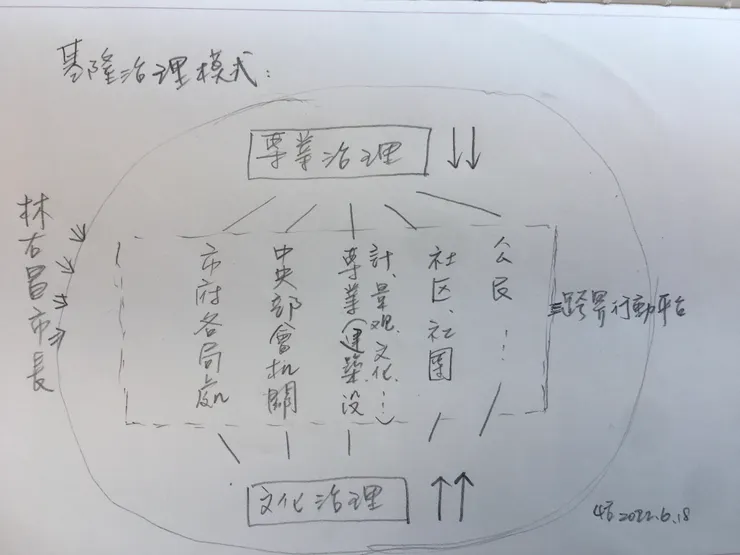 基隆治理模式：
專業治理
林右昌市長
市府各局處
中央部會机關
專業(建築.設
計、景观.文化、…)
社区、社團
公民…
跨界行動平台
文化治理
2022.6.18